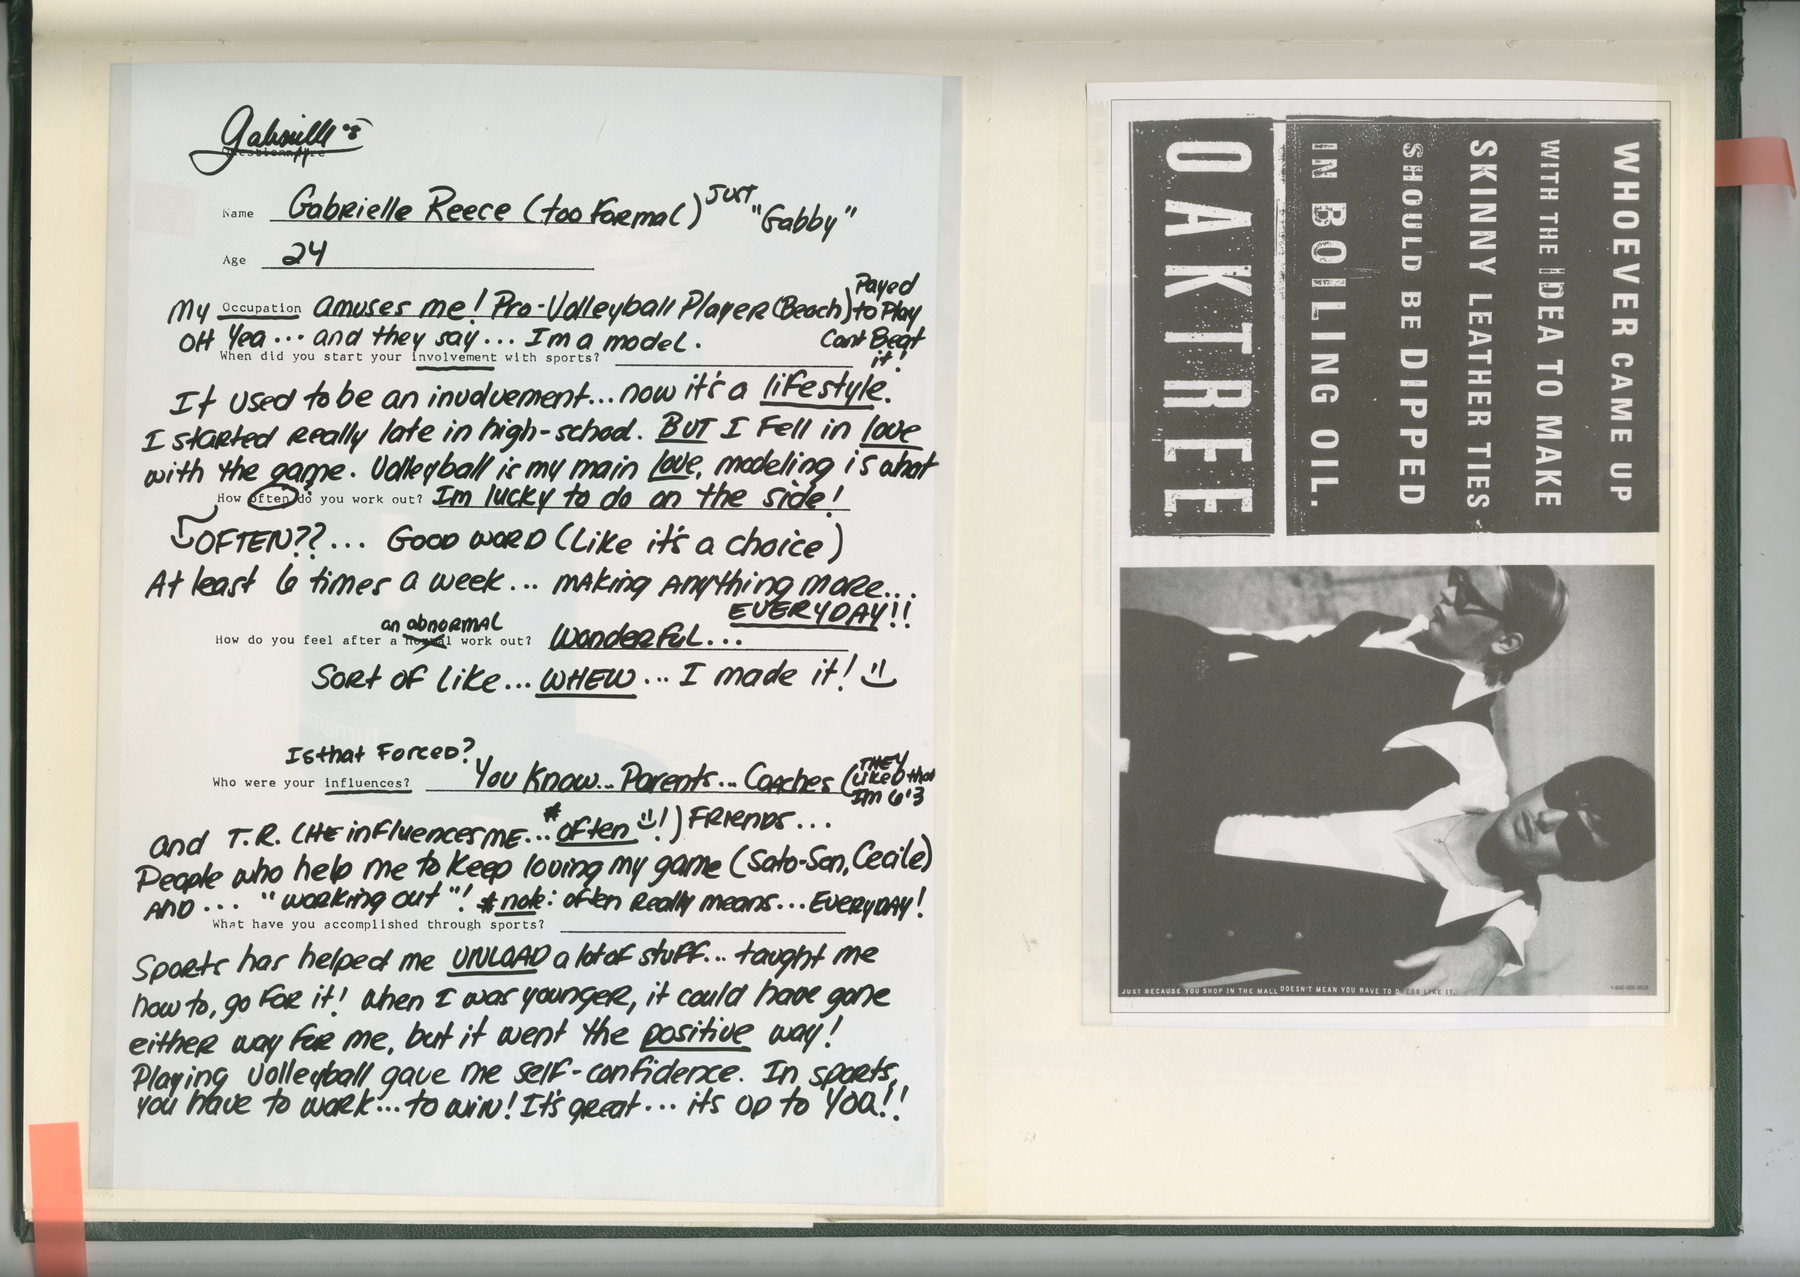 Gabrielle's
Questionnaire
Name Gabrielle Reece (too formal) Just "Gabby"
Age 24
My Occupation amuses me! Pro-Volleyball Player (Beach) Payed to Play Cant Beat it!
OH Yea... and they say... Im a model.
When did you start your involvement with sports?
It used to be an involvement... now it's a lifestyle.
I started really late in high-school. BUT I fell in love
with the game. Volleyball is my main love, modeling is what
How often do you work out? Im lucky to do on the side!
OFTEN??... GOOD WORD (Like it's a choice)
At least 6 times a week... making anything more...
EVERYDAY!!
How do you feel after an abnormal work out? Wonderful...
Sort of like... WHEW... I made it!
Is that Forced?
Who were your influences? You Know... Parents... Coaches (THEY Liked that Im 6'3
and T.R. (HE influences me... *often !) FRIENDS...
People who help me to keep loving my game (Sato-San, Cecile)
AND... "working out"! *note: often Really means... EVERYDAY!
What have you accomplished through sports?
Sports has helped me UNLOAD a lot of stuff... taught me
how to, go for it! When I was younger, it could have gone
either way for me, but it went the positive way!
Playing volleyball gave me self-confidence. In sports,
you have to work... to win! It's great... its up to You!!
WHOEVER CAME UP
WITH THE IDEA TO MAKE
SKINNY LEATHER TIES
SHOULD BE DIPPED
IN BOILING OIL.
OAKTREE
JUST BECAUSE YOU SHOP IN THE MALL DOESN'T MEAN YOU HAVE TO DRESS LIKE IT.